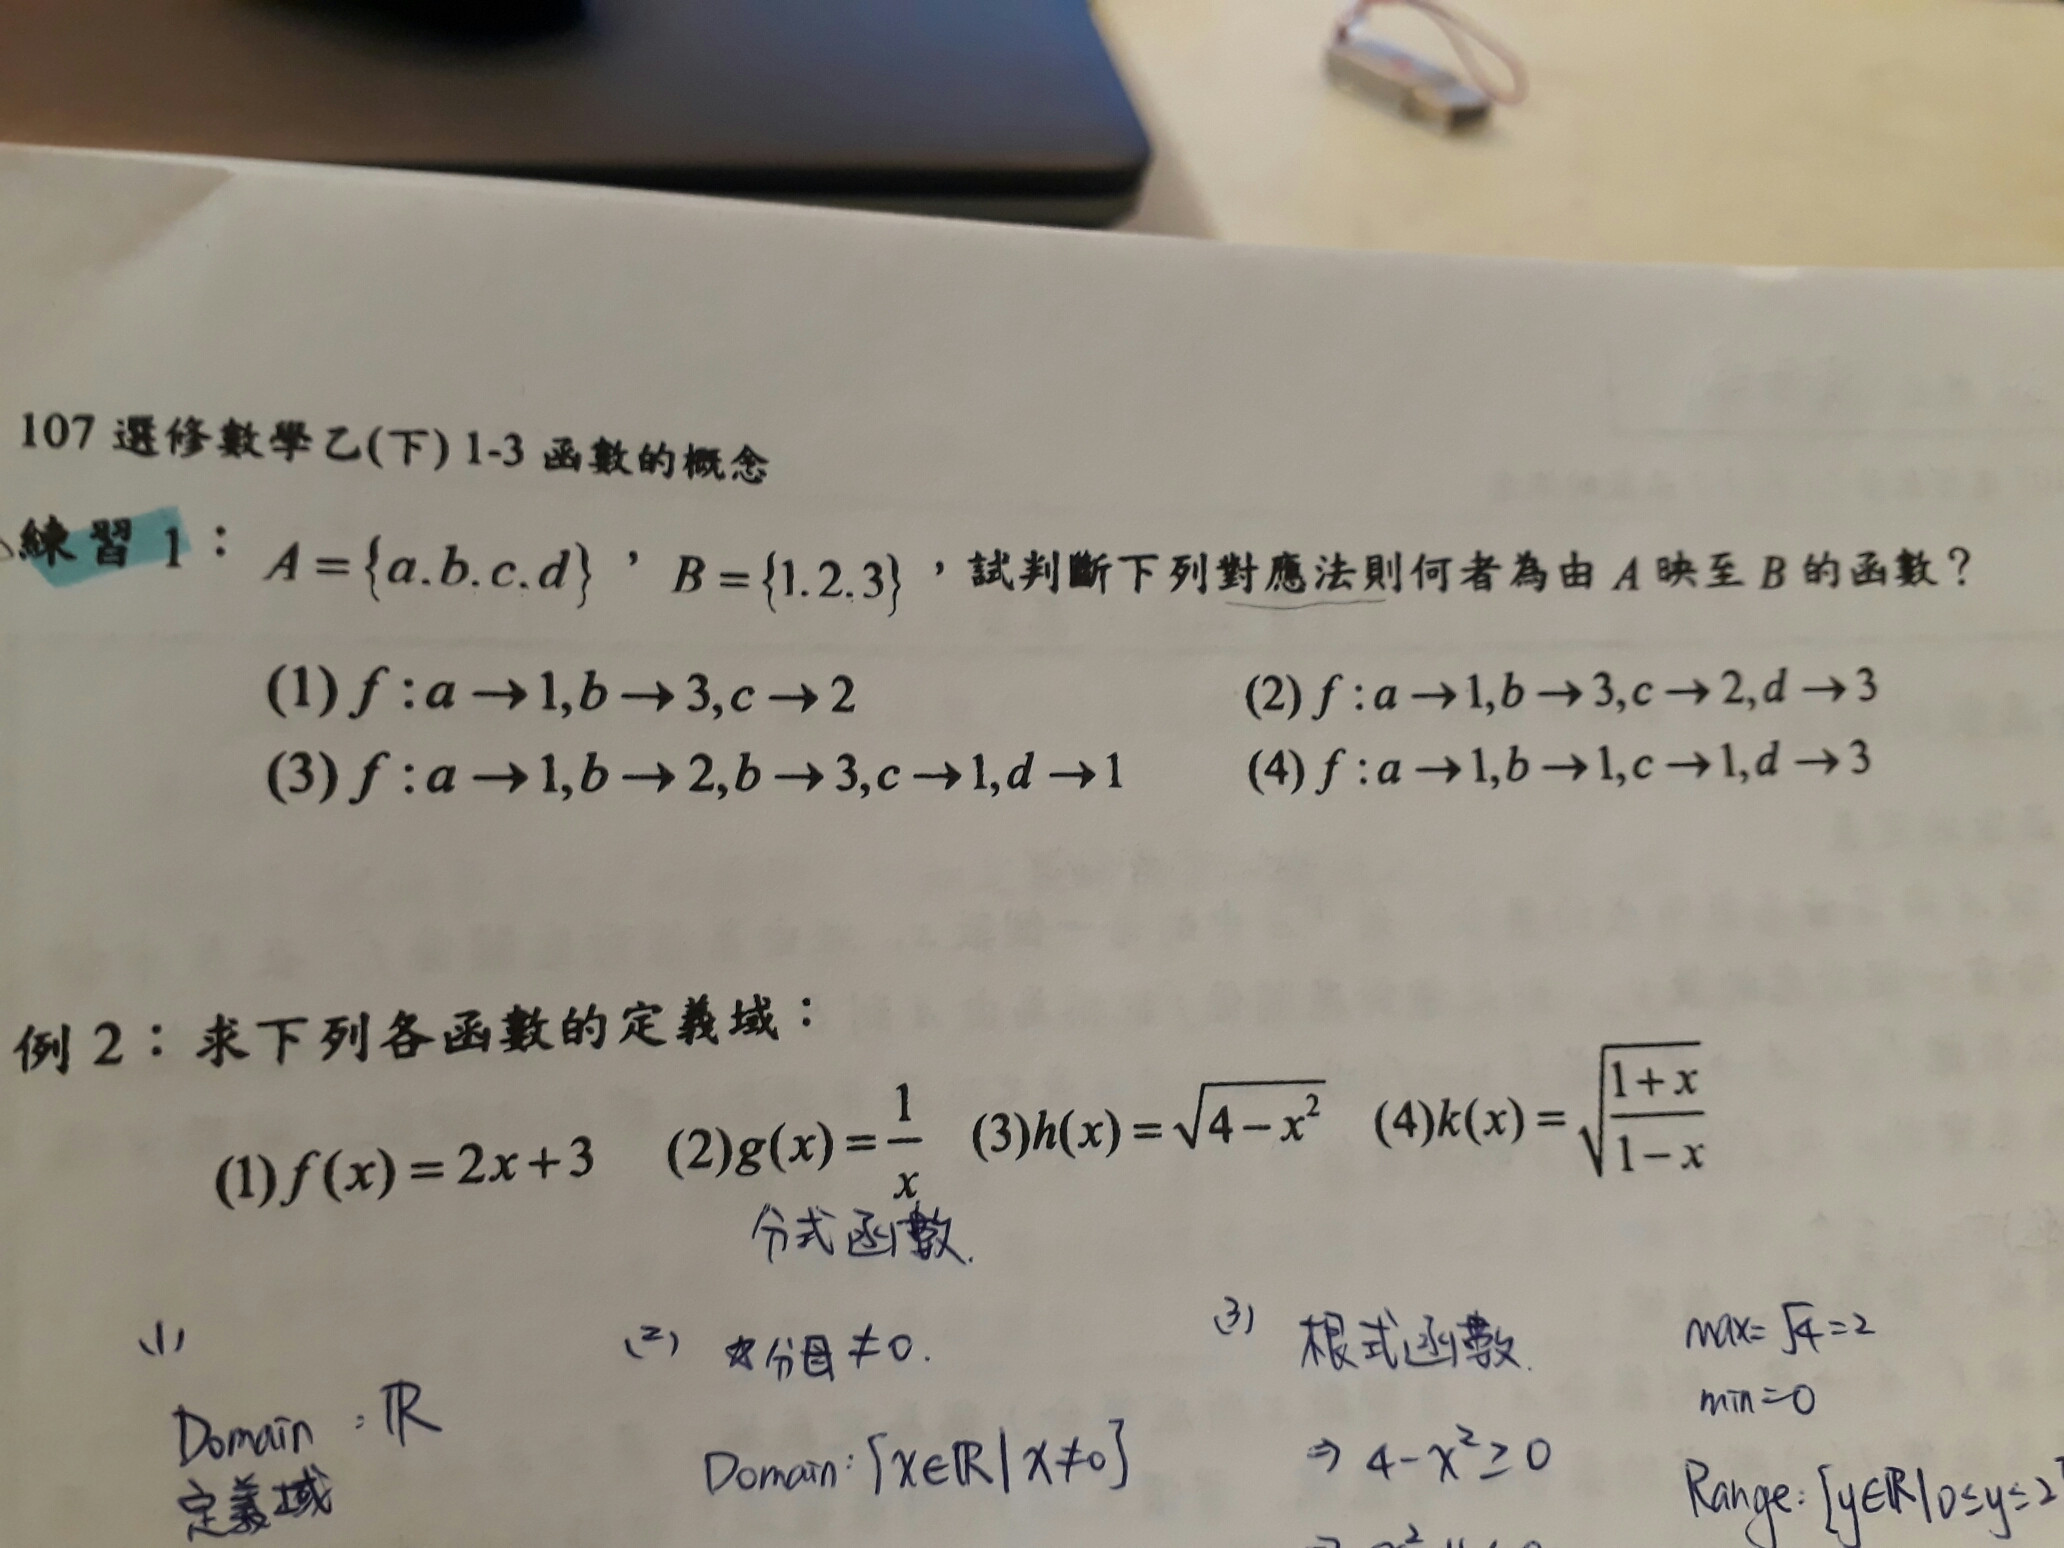 107 選修數學乙(下) 1-3 函數的概念
練習 1： A = {a.b.c.d} ， B = {1.2.3} ，試判斷下列對應法則何者為由 A 映至 B 的函數？
(1) f : a → 1, b → 3, c → 2 (2) f : a → 1, b → 3, c → 2, d → 3
(3) f : a → 1, b → 2, b → 3, c → 1, d → 1 (4) f : a → 1, b → 1, c → 1, d → 3
例 2：求下列各函數的定義域：
(1) f(x) = 2x + 3 (2) g(x) = 1/x (3) h(x) = √(4 − x²) (4) k(x) = √((1 + x)/(1 − x))
分式函數.
(1) (2) 分母 ≠ 0. (3) 根式函數. max = √4 = 2
min = 0
Domain : ℝ Domain : {x∈ℝ | x≠0} ⇒ 4 − x² ≥ 0 Range : {y∈ℝ | 0≤y≤2
定義域